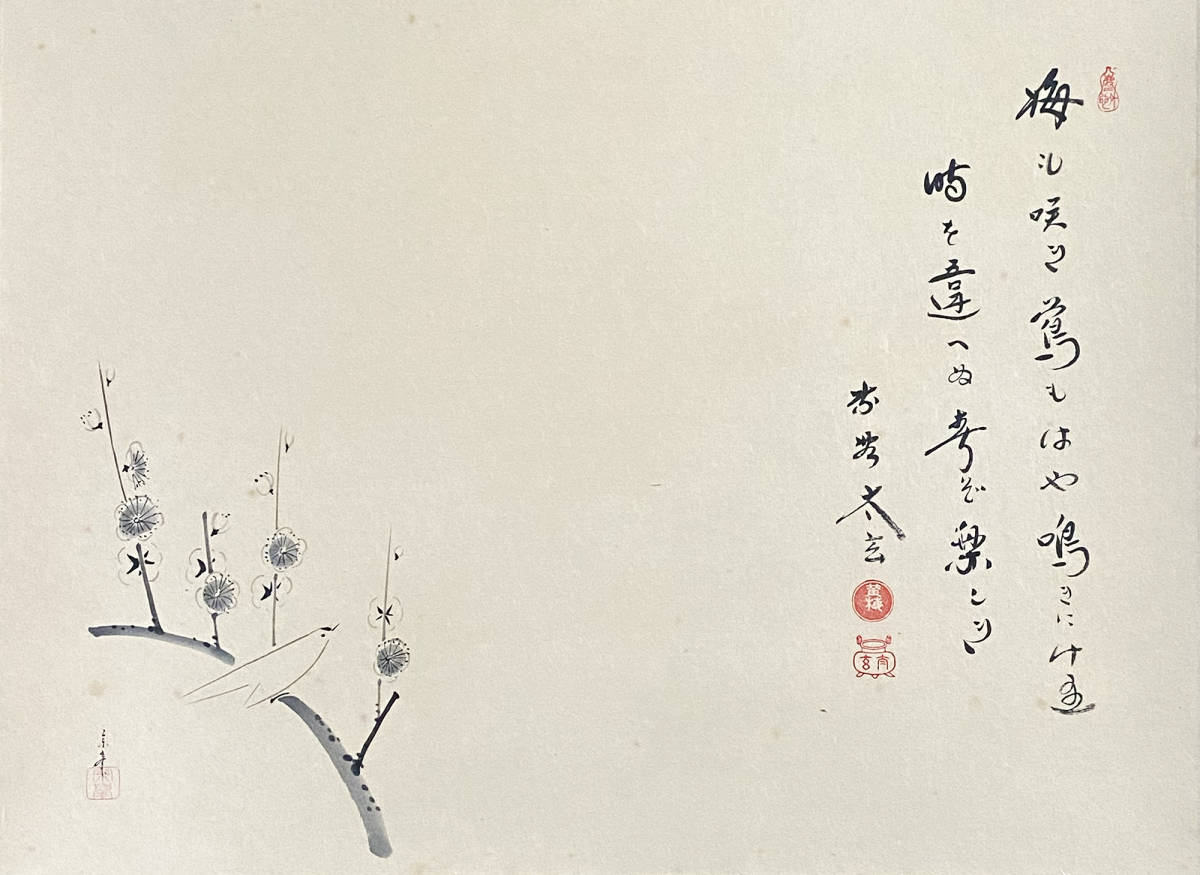 梅も咲き鶯もはや鳴きにけり
時を違へぬ春ぞ楽しき
太玄
黄梅